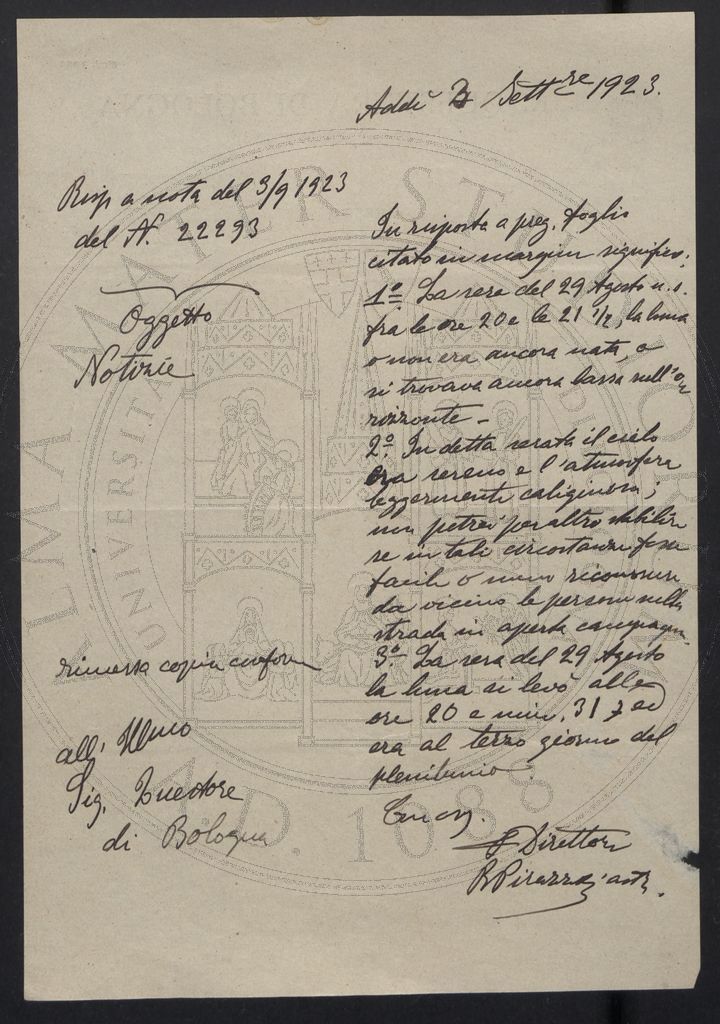 Addì Sett.re 1923.
Risp a nota del 3/9 1923
del N. 22293
Oggetto
Notizie
In risposta a preg. foglio
citato in margine significo:
1º La sera del 29 Agosto u.s.
fra le ore 20 e le 21 1/2, la luna
o non era ancora nata, o
si trovava ancora bassa sull'o
rizzonte -
2º. In detta serata il cielo
era sereno e l'atmosfera
leggermente caliginosa;
non potrei peraltro stabilire
se in tali circostanze fosse
facile o meno riconoscere
da vicino le persone nella
strada in aperta campagna
3º La sera del 29 Agosto
la luna si levò alle
ore 20 e min. 31 ed
era al terzo giorno del
plenilunio.
Con oss.
Il Direttore
rimessa copia conforme
all' Illmo
Sig. Questore
di Bologna
ALMA MATER STUDIORUM
UNIVERSITA
A.D. 1088